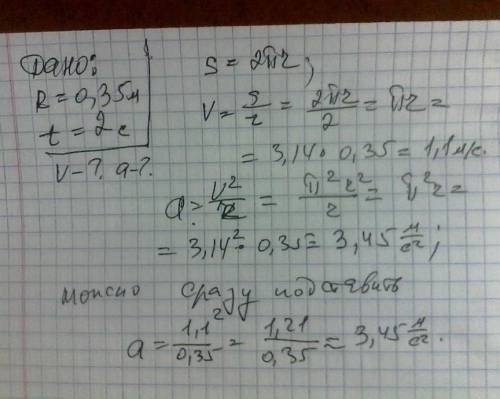 Дано:
R = 0,35м
t = 2с
V-? a-?.
S = 2πr;
V = S/t = 2πr/2 = πr =
= 3,14 · 0,35 = 1,1 м/с.
a = V²/R = π²r²/r = π²r =
= 3,14² · 0,35 = 3,45 м/с²;
можно сразу подставить
a = 1,1²/0,35 = 1,21/0,35 = 3,45 м/с².